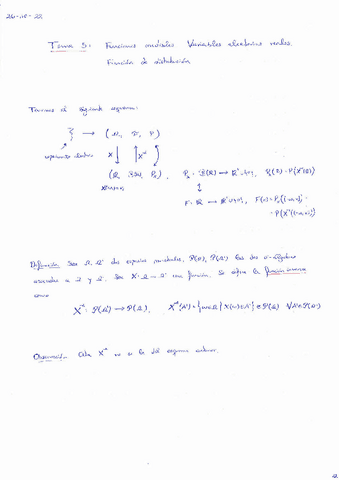 Tema 3. Funciones medibles. Variables aleatorias reales.
Función de distribución
Tenemos el siguiente esquema:
ξ → (Ω, , P)
X ↓ ↑ X⁻¹
(ℝ, B(ℝ), Pₓ), Pₓ: B(ℝ) → P(X⁻¹(B))
F: ℝ → F(x) = Pₓ((-∞, x])
= P(X⁻¹((-∞, x]))
Definición. Sean Ω, Ω' dos espacios muestrales, P(Ω), P(Ω') las dos σ-álgebras
asociadas a Ω y Ω'. Sea X: Ω → Ω' una función. Se define la función inversa
como
X⁻¹: P(Ω') → P(Ω), X⁻¹(A') = {ω∈Ω / X(ω)∈A'} ∈ P(Ω) ∀A'∈P(Ω')
Observación. Esta X⁻¹ no es la del esquema anterior.